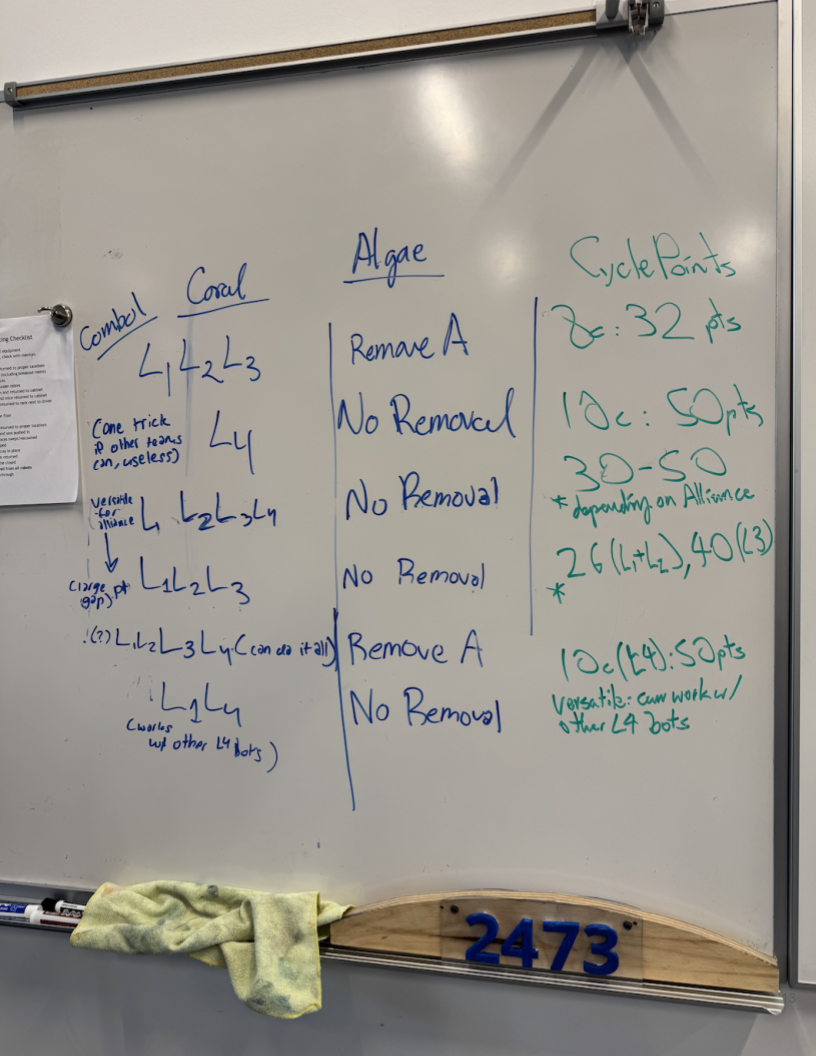 Combo! Coral Algae Cycle Points
L1 L2 L3 Remove A 8c: 32 pts
Cone trick
if other teams
can, useless)
L4 No Removal 10c: 50pts
versatile
for
alliance
L1 L2 L3 L4 No Removal 30-50
* depending on Alliance
(large pt
gap)
L1 L2 L3 No Removal * 26 (L1+L2), 40 (L3)
!(?) L1 L2 L3 L4 (can do it all) Remove A 10c (L4): 50pts
L1 L4 No Removal versatile: can work w/
other L4 bots
(works
w/ other L4 bots)
2473
ing Checklist